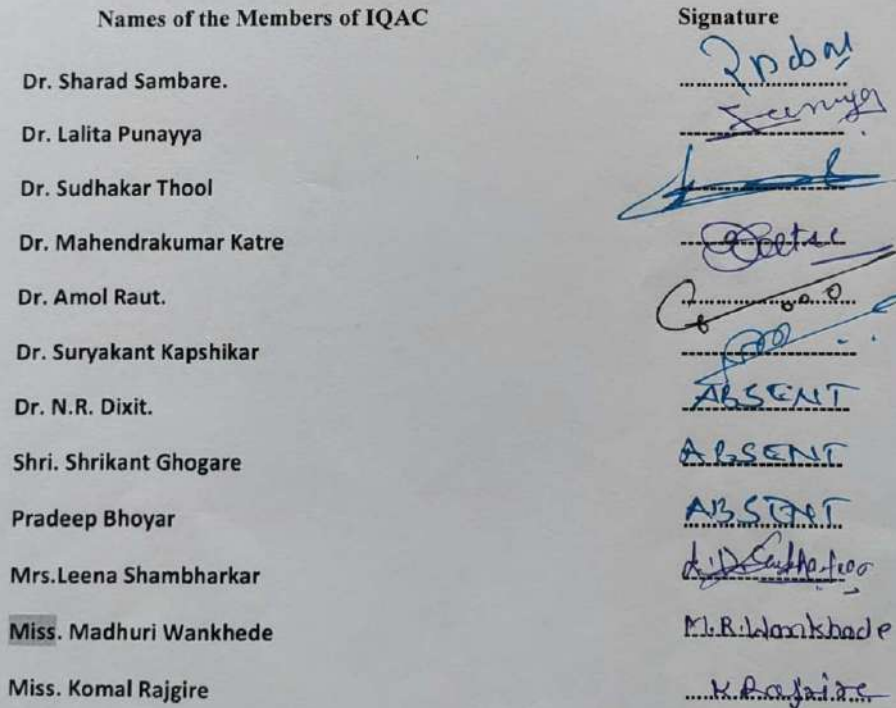 Names of the Members of IQAC Signature
Dr. Sharad Sambare.
Dr. Lalita Punayya
Dr. Sudhakar Thool
Dr. Mahendrakumar Katre
Dr. Amol Raut.
Dr. Suryakant Kapshikar
Dr. N.R. Dixit. ABSENT
Shri. Shrikant Ghogare ABSENT
Pradeep Bhoyar ABSENT
Mrs.Leena Shambharkar
Miss. Madhuri Wankhede M.R.Wankhade
Miss. Komal Rajgire K Rajgire